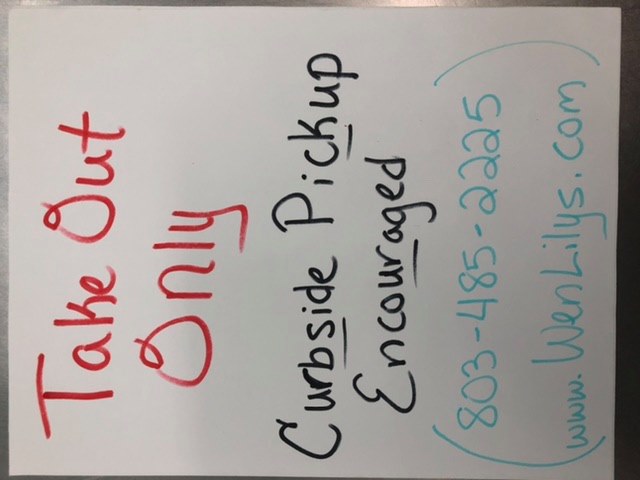 Take Out
Only
Curbside Pickup
Encouraged
(803-485-2225)
(www.WenLilys.com)